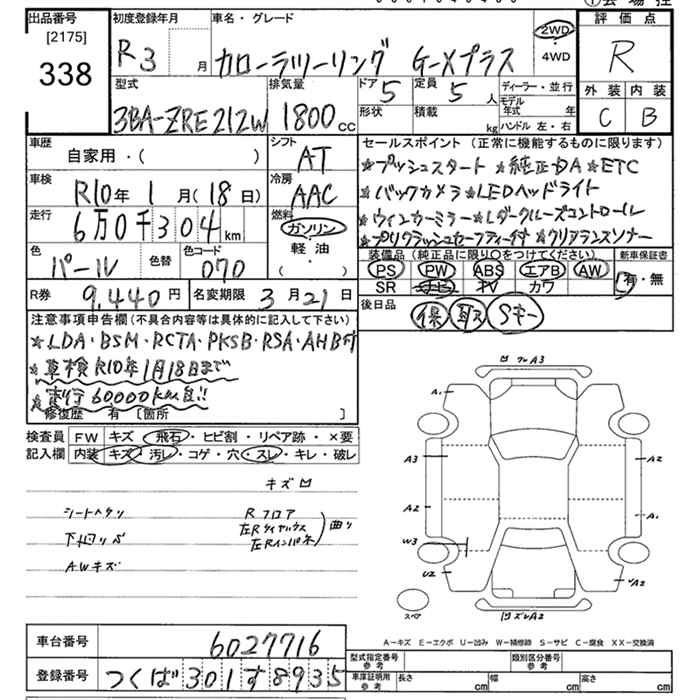 出品番号 初度登録年月 車名・グレード 2WD・4WD 評価点
[2175]
338 R3 月 カローラツーリング G-Xプラス R
型式 排気量 ドア 5 定員 5人 ディーラー・並行 外装 内装
3BA-ZRE212W 1800cc 形状 積載 kg モデル年式 年 ハンドル 左・右 C B
車歴 自家用・( ) シフト AT セールスポイント (正常に機能するものに限ります)
★プッシュスタート ★純正DA ★ETC
車検 R10年 1月(18日) 冷房 AAC ★バックカメラ ★LEDヘッドライト
走行 6万0千304km 燃料 ガソリン・軽油・( ) ★ウインカーミラー ★レダークルーズコントロール
★プリクラッシュセーフティー付 ★クリアランスソナー
色 パール 色替 色コード 070 装備品 (純正品に限り○をつけてください) 新車保証書
PS PW ABS エアB AW 有・無
SR ナビ TV カワ
R券 9,440円 名変期限 3月21日 後日品 保 取 Sキー
注意事項申告欄 (不具合内容等は具体的に記入して下さい)
★LDA・BSM・RCTA・PKSB・RSA・AHB付
★車検R10年1月18日まで
★走行60000km台!!
修復歴 有 [箇所 ]
検査員記入欄 FW キズ・飛石・ヒビ割・リペア跡・×要
内装 キズ・汚レ・コゲ・穴・スレ・キレ・破レ
キズ凹
シートヘタリ Rフロア
左Rタイヤハウス 曲リ
下廻りサビ 左Rインパネ
AWキズ
凹 ズレ A3
A1
A3 A2
A2 A1
W3
U2 A2
スペア 凹ズレA2
A-キズ E-エクボ U-凹み W-補修跡 S-サビ C-腐食 XX-交換済
車台番号 6027716
型式指定番号 参考 類別区分番号 参考
登録番号 つくば 301す8935 車庫証明用 参考 長さ cm 幅 cm 高さ cm